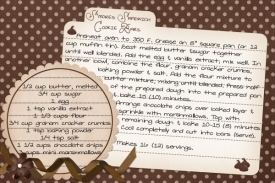 S'mores Sandwich
Cookie Bars
Preheat oven to 350 F. Grease an 8" square pan (or 12
cup muffin tin). Beat melted butter & sugar together
until well blended. Add the egg & vanilla extract; mix well. In
another bowl, combine the flour, graham cracker crumbs,
baking powder & salt. Add the flour mixture to
butter mixture; mixing until blended. Press half
of the prepared dough into the prepared pan
& bake 15 (10) minutes.
Arrange chocolate chips over baked layer &
sprinkle with marshmallows. Top with
remaining dough & bake 10-15 (8) minutes
Cool completely and cut into bars (serve).
Makes 16 (12) servings.
1/2 cup butter, melted
3/4 cup sugar
1 egg
1 tsp vanilla extract
1 1/3 cups flour
3/4 cup graham cracker crumbs
1 tsp baking powder
1/4 tsp salt
1 1/2 cups chocolate chips
cups mini marshmallows